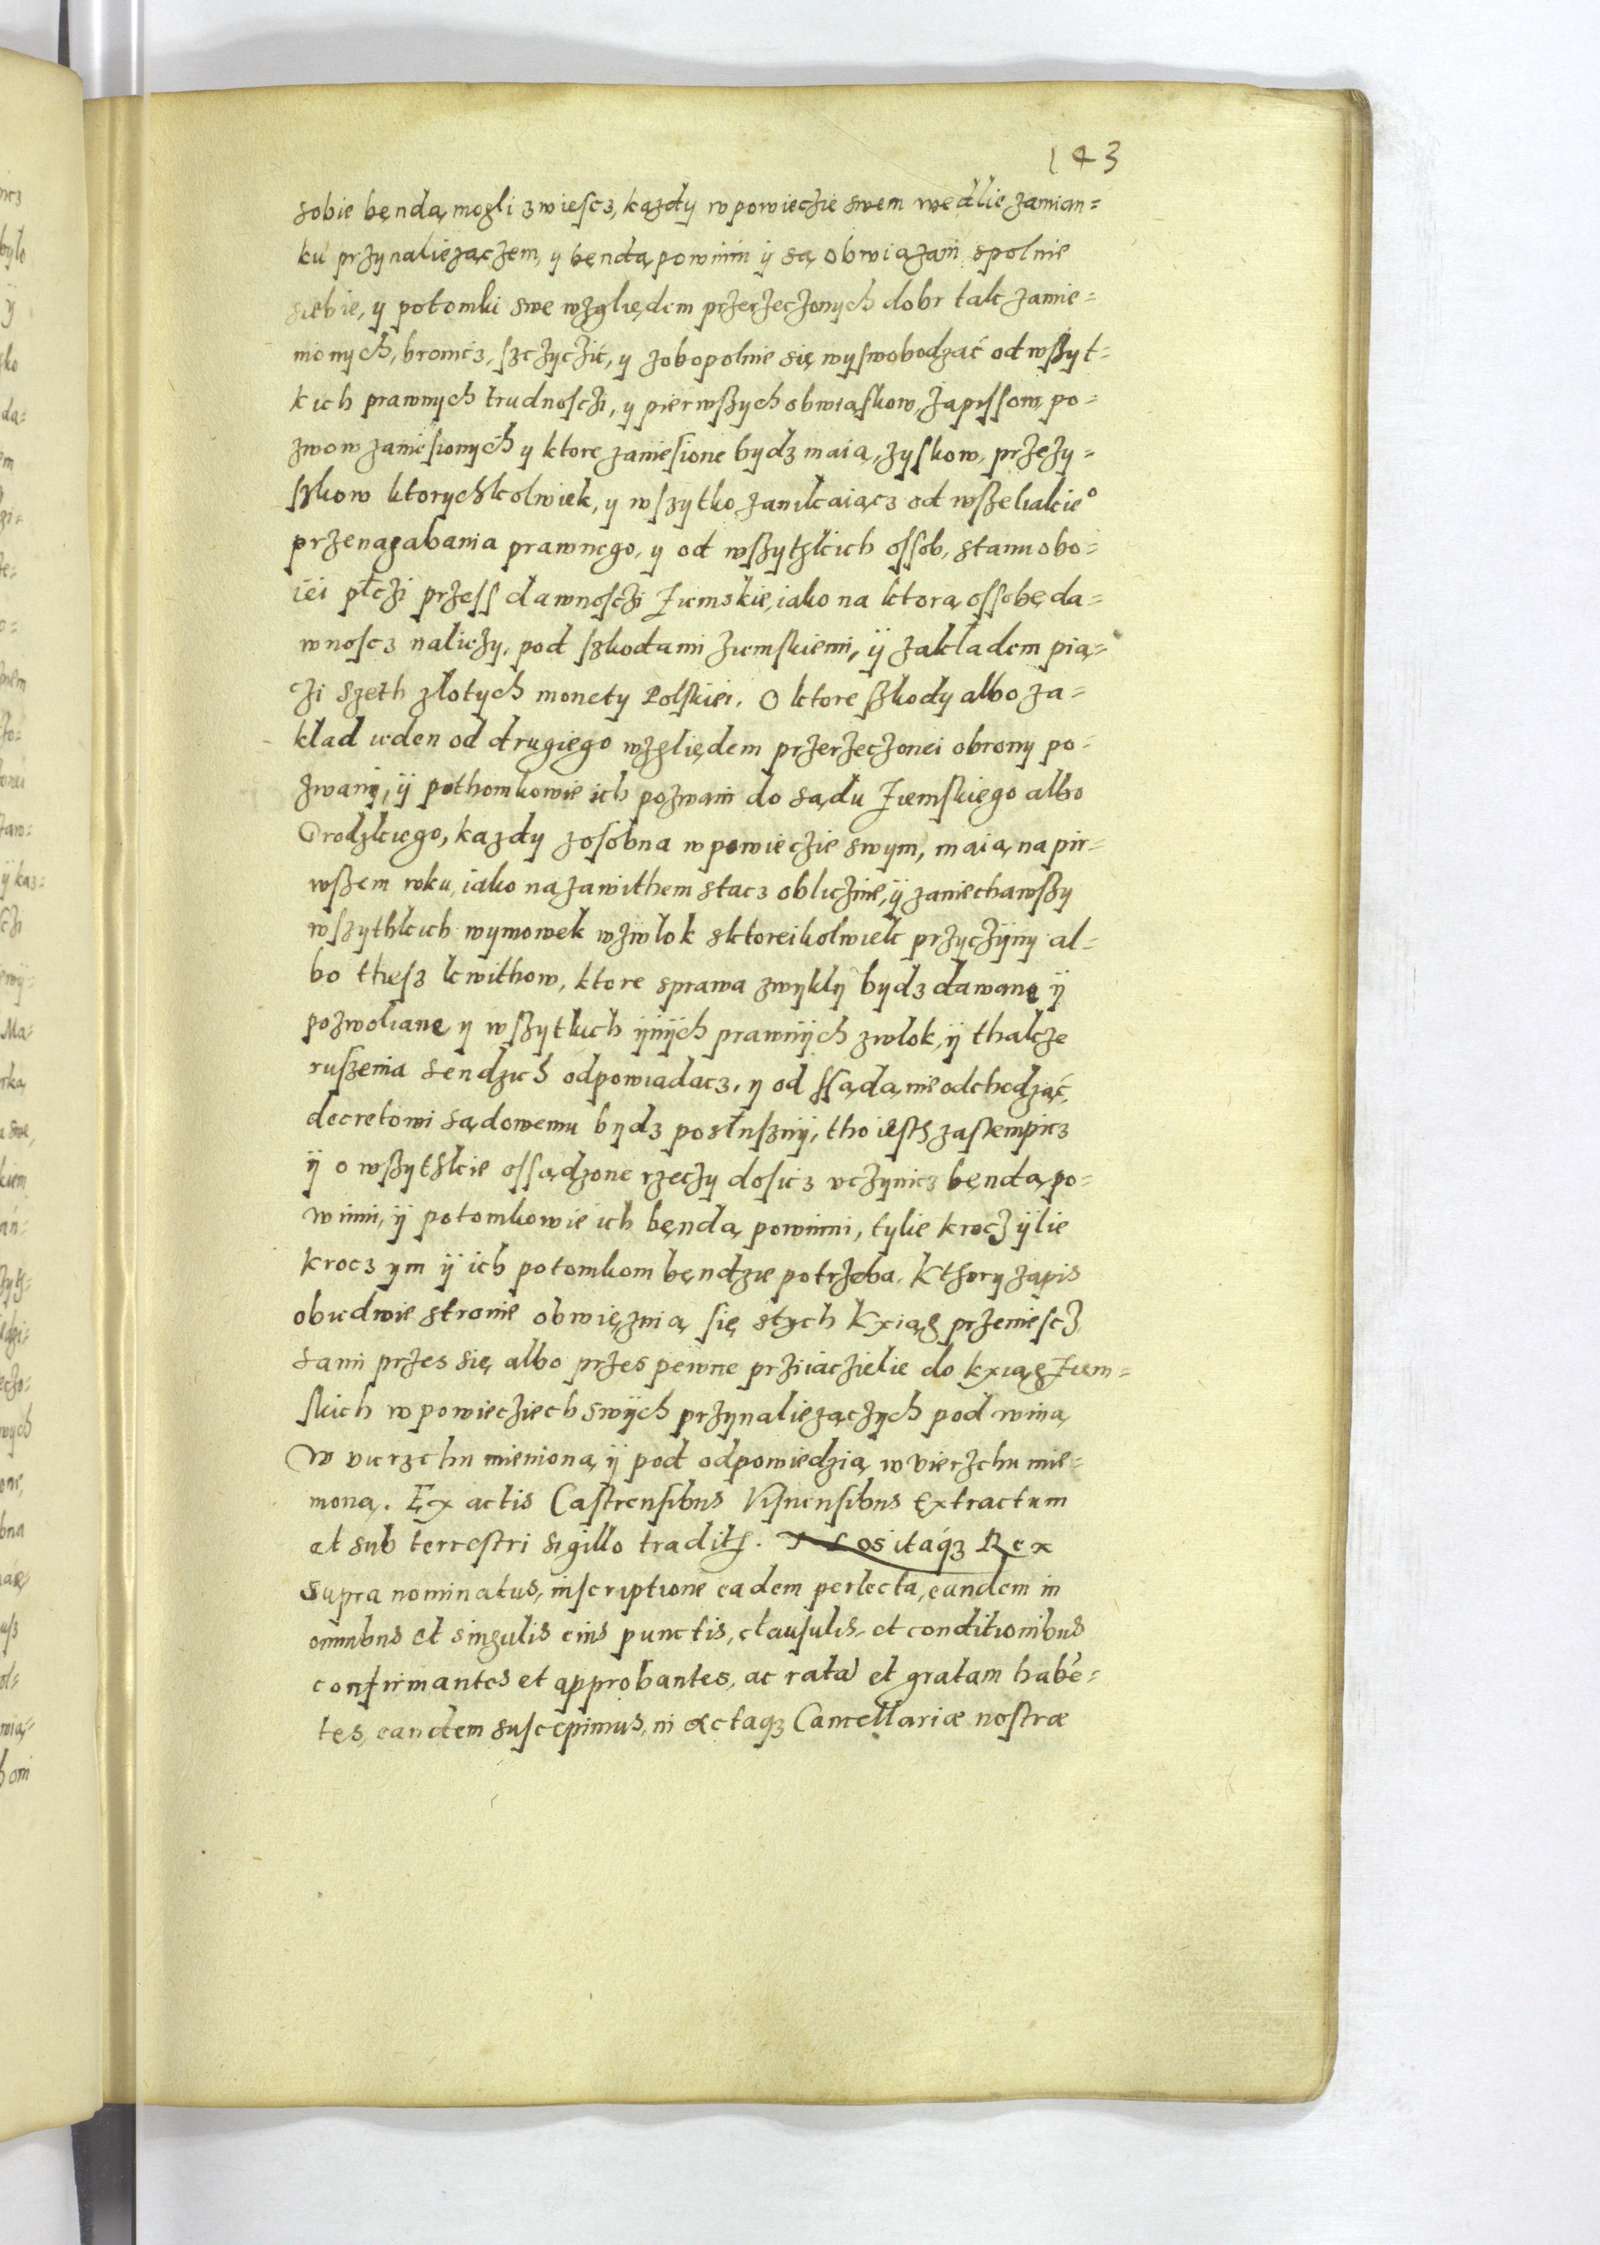 143
sobie bęndą mogli zwiescz, każdy w powieczie swem wedlie zamian=
ku przynaliezączem, y bęndą powinni ÿ są obwiązani spolnie
siebie, y potomki swe wzglię̨dem przerzeczonych dobr tak zamie=
nionych, bronicz, szczyczić, y zobopolnie się wyswobodzać od wszyt=
kich prawnych trudnosczi, y pierwszych obwiąskow, zapissow, po=
zwow zaniesionych y ktore zaniesione bydz maią, zyskow, przezy=
szkow ktorychkolwiek, y wszytko zamikaiącz od wszeliakie°
przenagabania prawnego, y od wszythkich ossob, stanu obo=
iei płczi przess dawnosczi Ziemskie, iako na ktorą ossobę da=
wnoscz naliezy, pod szkodami ziemskiemi, ÿ zakładem pią=
czi szeth złotych monety Polskiei. O ktore szkody albo za=
kład ieden od drugiego wzgliędem przerzeczonei obrony po=
zwany, ÿ pothomkowie ich pozwani do sądu Ziemskiego albo
Grodzkiego, kazdy zosobna w powieczie swym, maią na pir=
wszem roku, iako na zawithem stacz obliczinie, ÿ zaniechawszy
wszythkich wymowek wzwlok sktoreikolwiek przyczÿny al=
bo thesz kwithow, ktore sprawa zwykly bydz dawane ÿ
pozwoliane y wszytkich ÿnÿch prawnÿch zwlok, ÿ thakze
ruszenia sendzich odpowiadacz, y od ssądą nie odchodząć,
decretowi sądowemu bydz posłusznÿ, tho iesth zastempicz
ÿ o wszythkie ossądzone rzeczy dosicz vczynicz bęndą po=
winni, ÿ potomkowie ich bęndą powinni, tylie krocz ÿlie
krocz ym ÿ ich potomkom bęndzie potrzeba. Kthory zapis
obiedwie stronie obwięznią się stych kxiąg przeniescz
sami przes się albo przes pewne prziiaczielie do kxiąg Ziem=
skich w powieczech swÿch przynaliezączych pod winą
w vierzchu mienioną ÿ pod odpowiedzią w vierzchu mie=
nioną. Ex actis Castrensibus Visnensibus Extractum
et sub terrestri sigillo tradith. Nos itaq3 Rex
supra nominatus, inscriptione eadem perlecta, eandem in
omnibus et singulis eius punctis, clausulis, et conditionibus
confirmantes et approbantes, ac ratā et gratam habē=
tes, eandem suscepimus, in actaq3 Cancellariæ nostræ